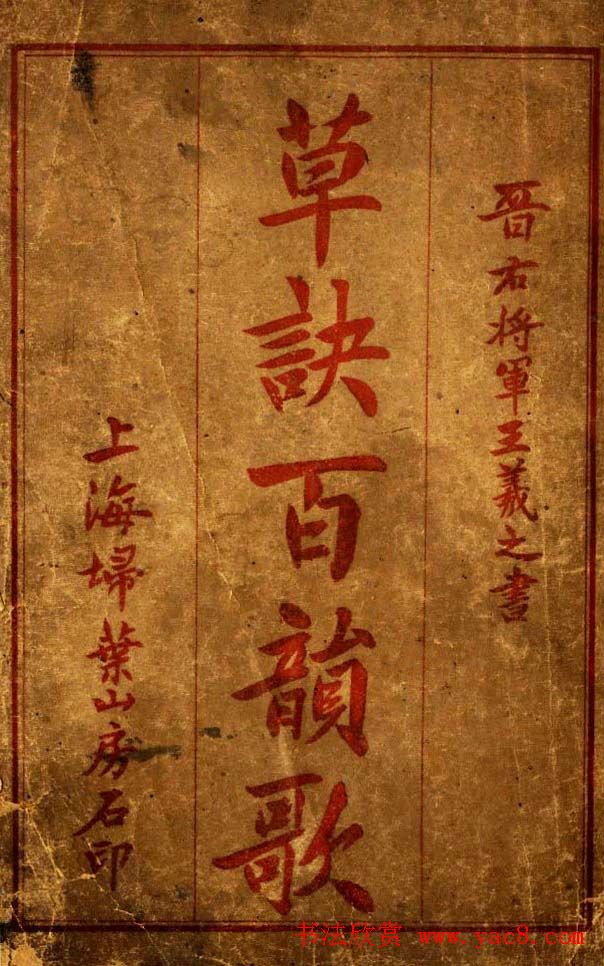 晋右将軍王羲之書
草訣百韻歌
上海埽葉山房石印
书法欣赏 www.yac8.com